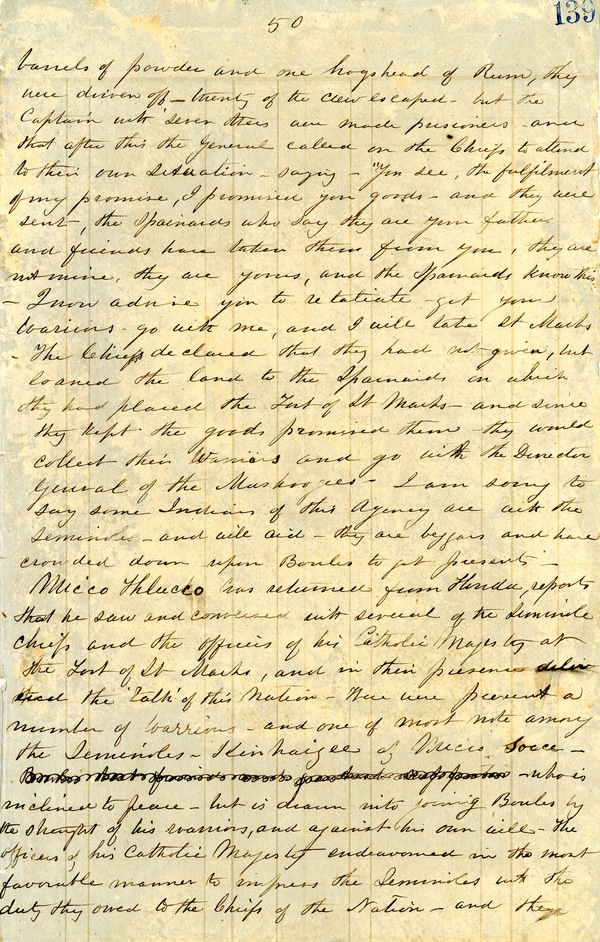 50
139
barrels of powder and one hogshead of Rum, they
were driven off - twenty of the crew escaped - but the
Captain with seven others are made prisoners - and
that after this the General called on the Chiefs to attend
to their own Situation - saying - "You see, the fulfilment
of my promise, I promised you goods - and they were
sent, the Spainards who say they are your fathers
and friends have taken them from you, they are
not mine, they are yours, and the Spainards know this
- I now advise you to retatiate - get your
Warriors - go with me, and I will take St Marks
- The Chiefs declared that they had not given, but
loaned the land to the Spainards on which
they had placed the Fort of St Marks - and since
they kept the goods promised them - they would
collect their Warriors and go with the Director
General of the Muskogees - I am sorry to
say some Indians of this Agency are with the
Seminoles - and will aid - they are beggars and have
crowded down upon Bowles to get presents -
Micco Thlucco has returned from Florida, reports
that he saw and conversed with several of the Seminole
Chiefs and the officers of his Catholic Majesty at
the Fort of St Marks, and in their presence
the 'talk' of this Nation - there were present a
number of Warriors - and one of most note among
the Seminoles - Kinhaizee of Micco Socce -
- who is
inclined to peace - but is drawn into joining Bowles by
the thought of his warriors, and against his own will - The
officers of his Catholic Majesty endeavored in the most
favorable manner to impress the Seminoles with the
duty they owed to the Chiefs of the Nation - and they